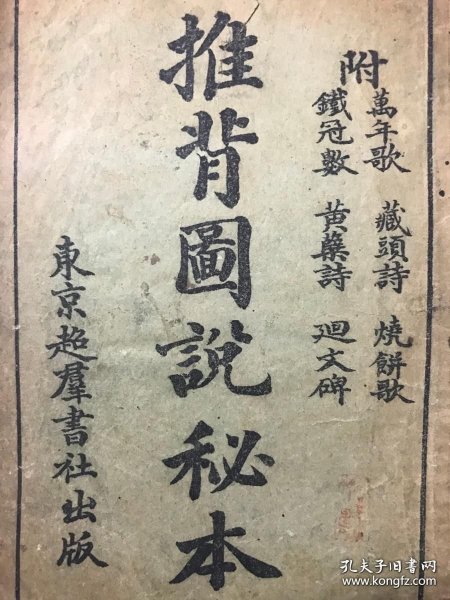 附
萬年歌 藏頭詩 燒餅歌
鐵冠數 黃蘗詩 廻文碑
推背圖說秘本
東京超羣書社出版
孔夫子旧书网
www.kongfz.com